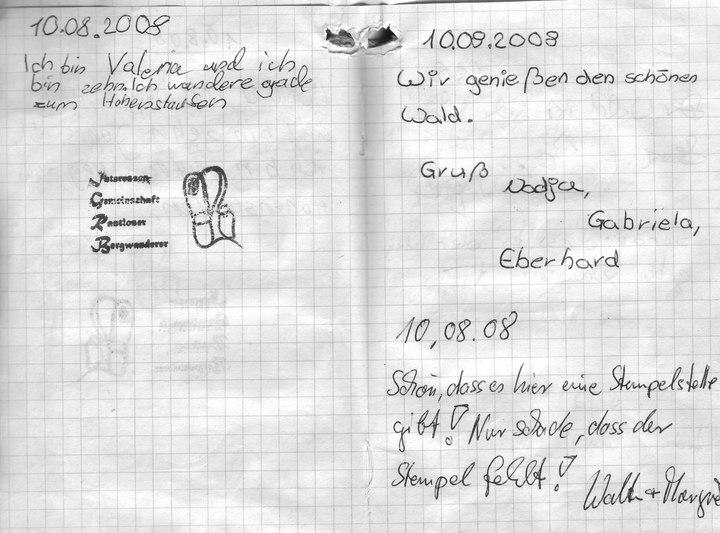 10.08.2008
Ich bin Valeria und ich
bin zehn. Ich wandere grade
zum Hohenstaufen
Interessen
Gemeinschaft
Rentioner
Bergwanderer
10.09.2008
Wir genießen den schönen
Wald.
Gruß Nadja,
Gabriela,
Eberhard
10,08.08
Schön, dass es hier eine Stempelstelle
gibt! Nur schade, dass der
Stempel fehlt!